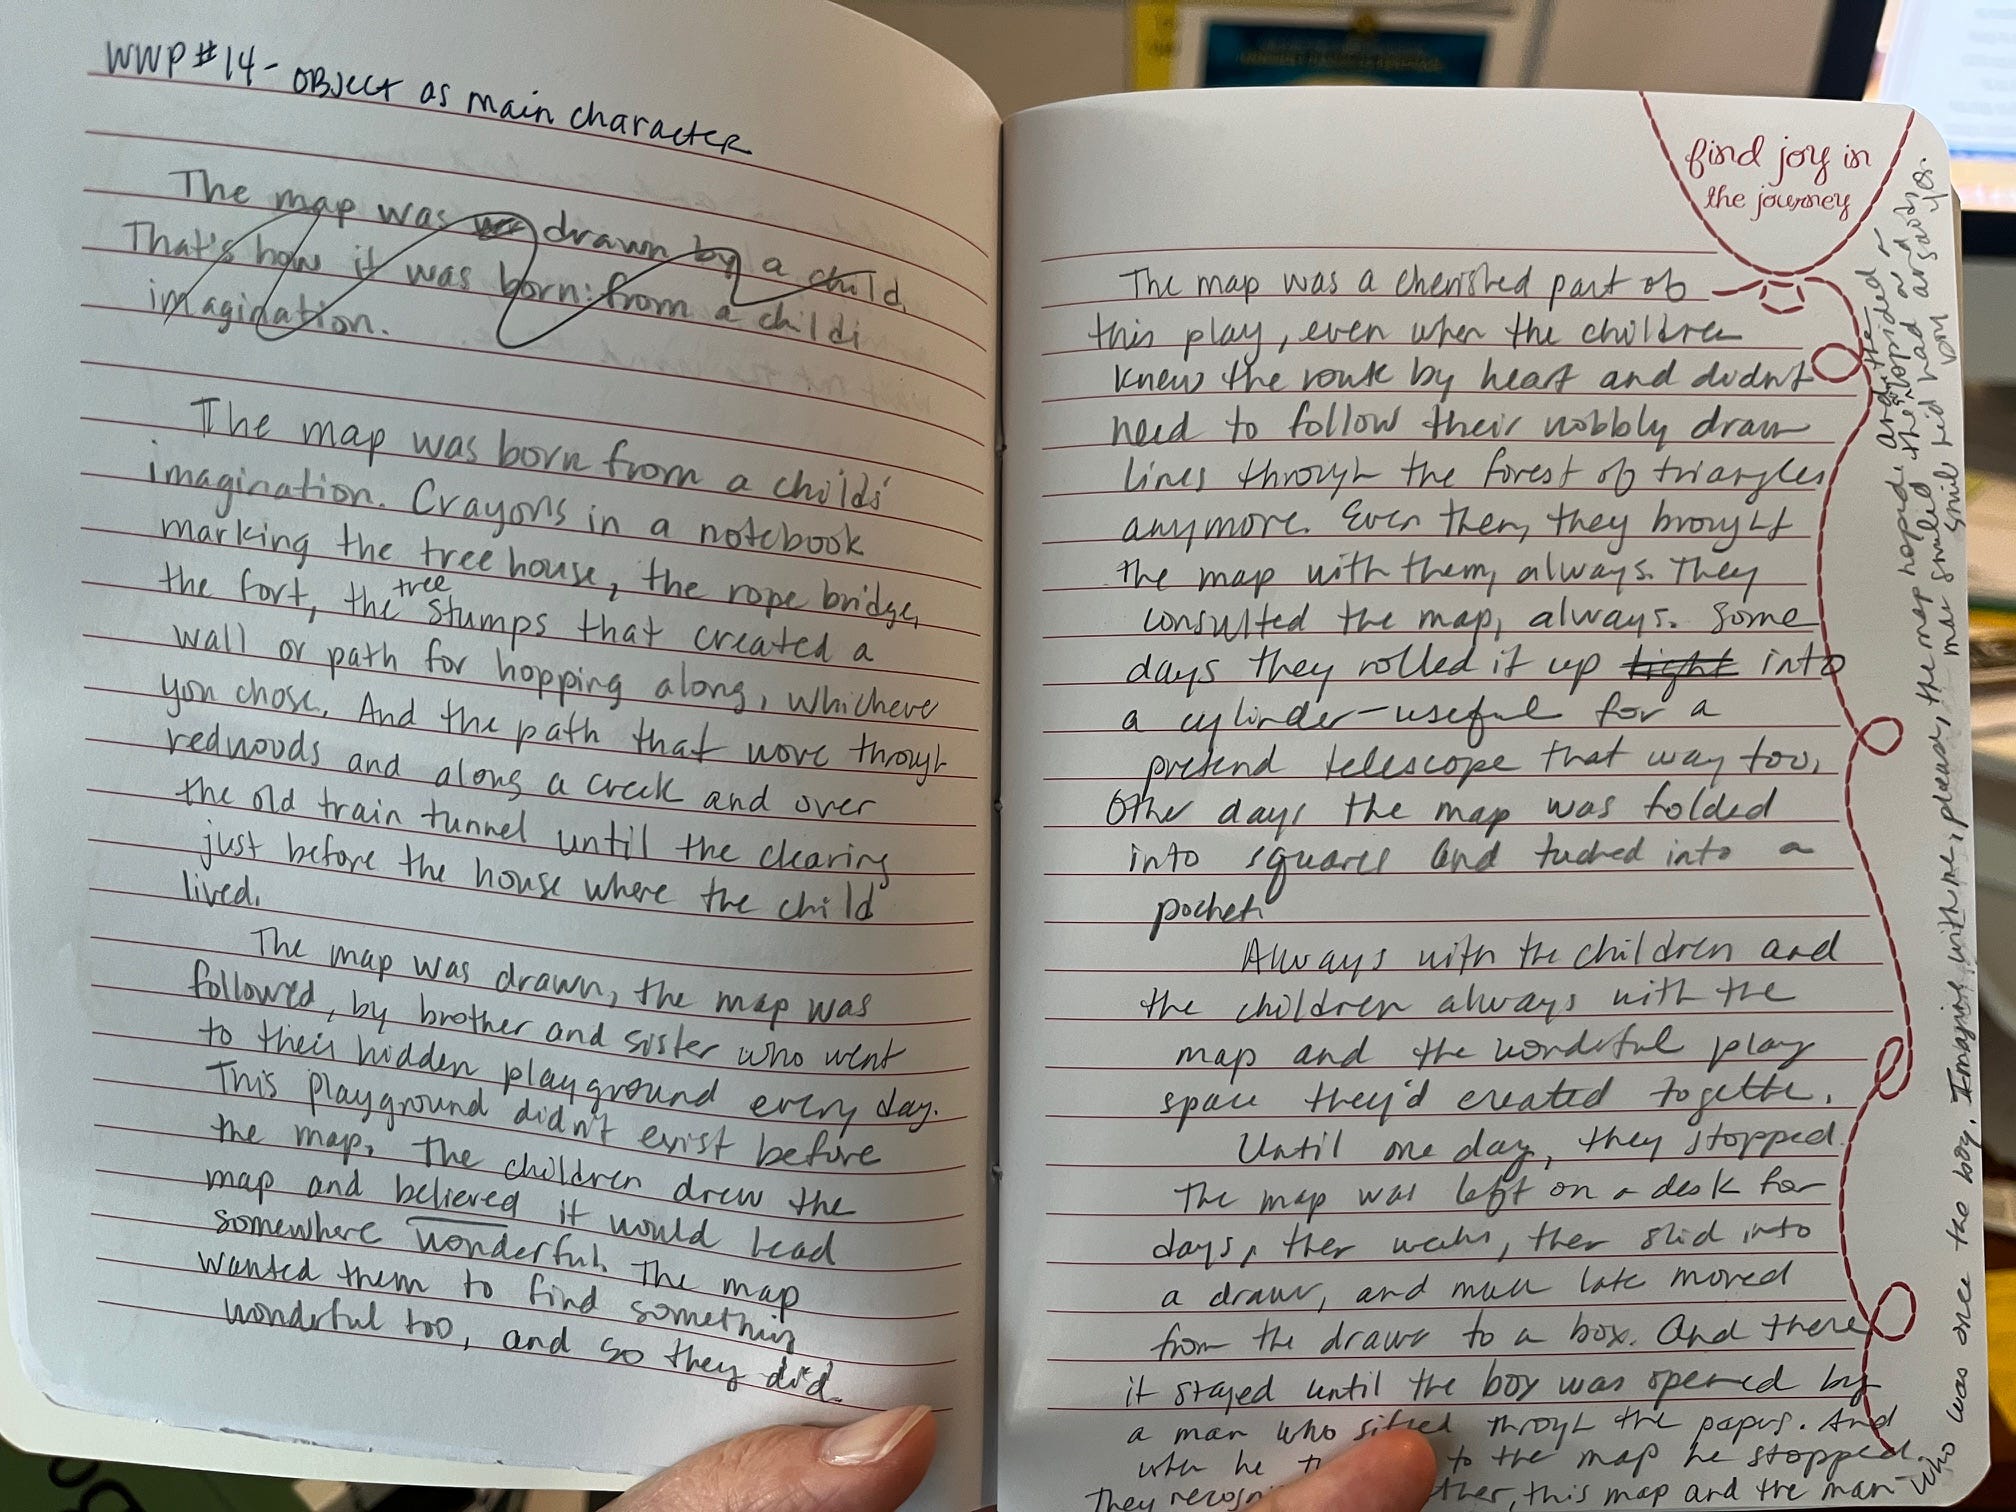 WWP #14 - OBJECT as main character
The map was drawn by a child.
That's how it was born: from a childs
imagination.
The map was born from a childs'
imagination. Crayons in a notebook
marking the tree house, the rope bridge,
the fort, the tree stumps that created a
wall or path for hopping along, whichever
you chose. And the path that wove through
redwoods and along a creek and over
the old train tunnel until the clearing
just before the house where the child
lived.
The map was drawn, the map was
followed, by brother and sister who went
to their hidden playground every day.
This playground didn't exist before
the map. The children drew the
map and believed it would lead
somewhere wonderful. The map
wanted them to find something
wonderful too, and so they did.
find joy in
the journey
The map was a cherished part of
this play, even when the children
knew the route by heart and didn't
need to follow their wobbly drawn
lines through the forest of triangles
anymore. Even then, they brought
the map with them, always. They
consulted the map, always. Some
days they rolled it up tight into
a cylinder - useful for a
pretend telescope that way too.
Other days the map was folded
into squares and tucked into a
pocket.
Always with the children and
the children always with the
map and the wonderful play
space they'd created together.
Until one day, they stopped.
The map was left on a desk for
days, then weeks, then slid into
a drawer, and much later moved
from the drawer to a box. And there
it stayed until the box was opened by
a man who sifted through the papers. And
when he to the map he stopped.
They ther, this map and the man
who was once the boy. Imagine with me, please, the map